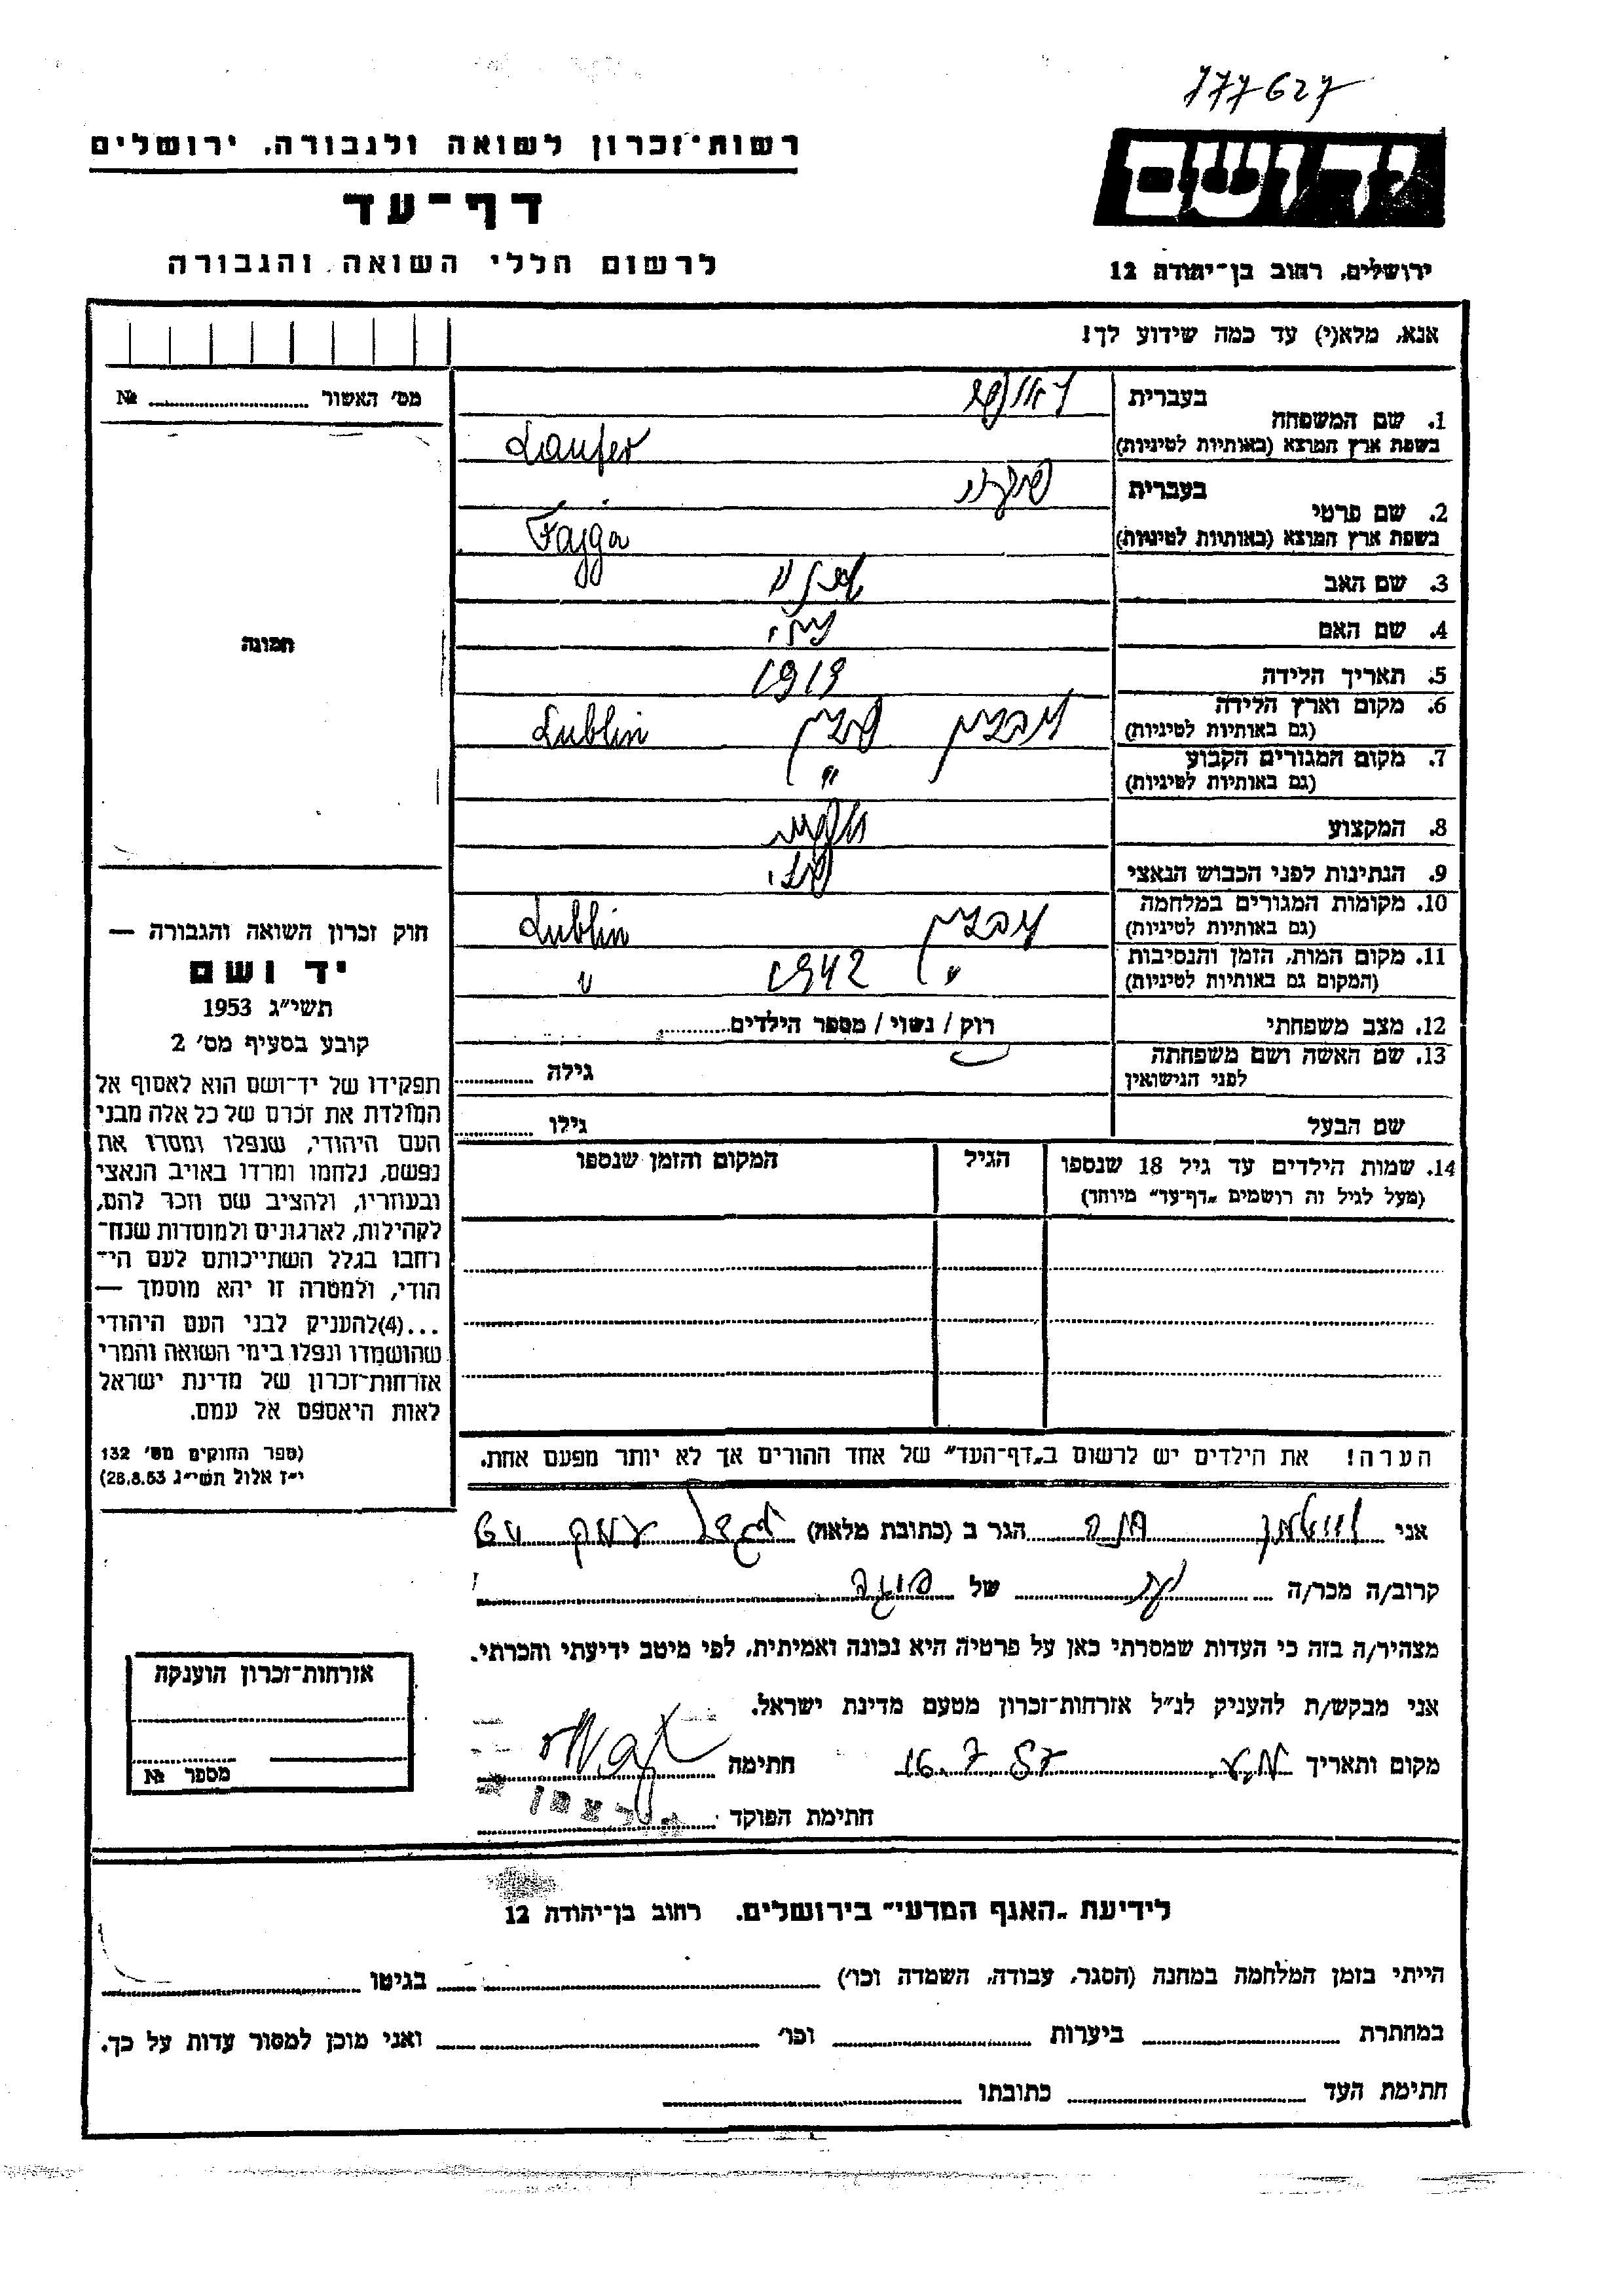 777627
רשות־זכרון לשואה ולגבורה, ירושלים
יד ושם
דף־עד
לרשום חללי השואה והגבורה
ירושלים, רחוב בן־יהודה 12
אנא, מלא(י) עד כמה שידוע לך!
מס׳ האשור № 
1. שם המשפחה
בעברית לאופר
בשפת ארץ המוצא (באותיות לטיניות) Laufer
2. שם פרטי
בעברית
בשפת ארץ המוצא (באותיות לטיניות) Fajga
3. שם האב
4. שם האם
5. תאריך הלידה 1919
6. מקום וארץ הלידה לובלין פולין Lublin
(גם באותיות לטיניות)
7. מקום המגורים הקבוע "
(גם באותיות לטיניות)
8. המקצוע
9. הנתינות לפני הכבוש הנאצי
10. מקומות המגורים במלחמה לובלין Lublin
(גם באותיות לטיניות)
11. מקום המות, הזמן והנסיבות " 1942 "
(המקום גם באותיות לטיניות)
12. מצב משפחתי רוק / נשוי / מספר הילדים
13. שם האשה ושם משפחתה
לפני הנישואין גילה
שם הבעל גילו
14. שמות הילדים עד גיל 18 שנספו הגיל המקום והזמן שנספו
(מעל לגיל זה רושמים „דף־עד״ מיוחד)
הערה! את הילדים יש לרשום ב„דף־העד״ של אחד ההורים אך לא יותר מפעם אחת.
תמונה
חוק זכרון השואה והגבורה —
יד ושם
תשי״ג 1953
קובע בסעיף מס׳ 2
תפקידו של יד־ושם הוא לאסוף אל
המולדת את זכרם של כל אלה מבני
העם היהודי, שנפלו ומסרו את
נפשם, נלחמו ומרדו באויב הנאצי
ובעוזריו, ולהציב שם וזכר להם,
לקהילות, לארגונים ולמוסדות שנח־
רחבו בגלל השתייכותם לעם הי־
הודי, ולמטרה זו יהא מוסמך —
...(4)להעניק לבני העם היהודי
שהושמדו ונפלו בימי השואה והמרי
אזרחות־זכרון של מדינת ישראל
לאות היאספם אל עמם.
(ספר החוקים מס׳ 132
י״ז אלול תשי״ג 28.8.53)
אני חנה הגר ב (כתובת מלאה)
קרוב/ה מכר/ה של
מצהיר/ה בזה כי העדות שמסרתי כאן על פרטיה היא נכונה ואמיתית, לפי מיטב ידיעתי והכרתי.
אני מבקש/ת להעניק לנ״ל אזרחות־זכרון מטעם מדינת ישראל.
מקום ותאריך 16.7.57 חתימה
חתימת הפוקד
אזרחות־זכרון הוענקה
מספר №
לידיעת „האגף המדעי״ בירושלים. רחוב בן־יהודה 12
הייתי בזמן המלחמה במחנה (הסגר, עבודה, השמדה וכו׳) בגיטו
במחתרת ביערות וכו׳ ואני מוכן למסור עדות על כך.
חתימת העד כתובתו